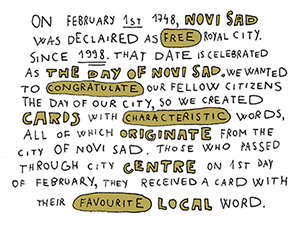 ON FEBRUARY 1ST 1748, NOVI SAD
WAS DECLAIRED AS FREE ROYAL CITY.
SINCE 1998. THAT DATE IS CELEBRATED
AS THE DAY OF NOVI SAD. WE WANTED
TO CONGRATULATE OUR FELLOW CITIZENS
THE DAY OF OUR CITY, SO WE CREATED
CARDS WITH CHARACTERISTIC WORDS,
ALL OF WHICH ORIGINATE FROM THE
CITY OF NOVI SAD. THOSE WHO PASSED
THROUGH CITY CENTRE ON 1ST DAY
OF FEBRUARY, THEY RECEIVED A CARD WITH
THEIR FAVOURITE LOCAL WORD.